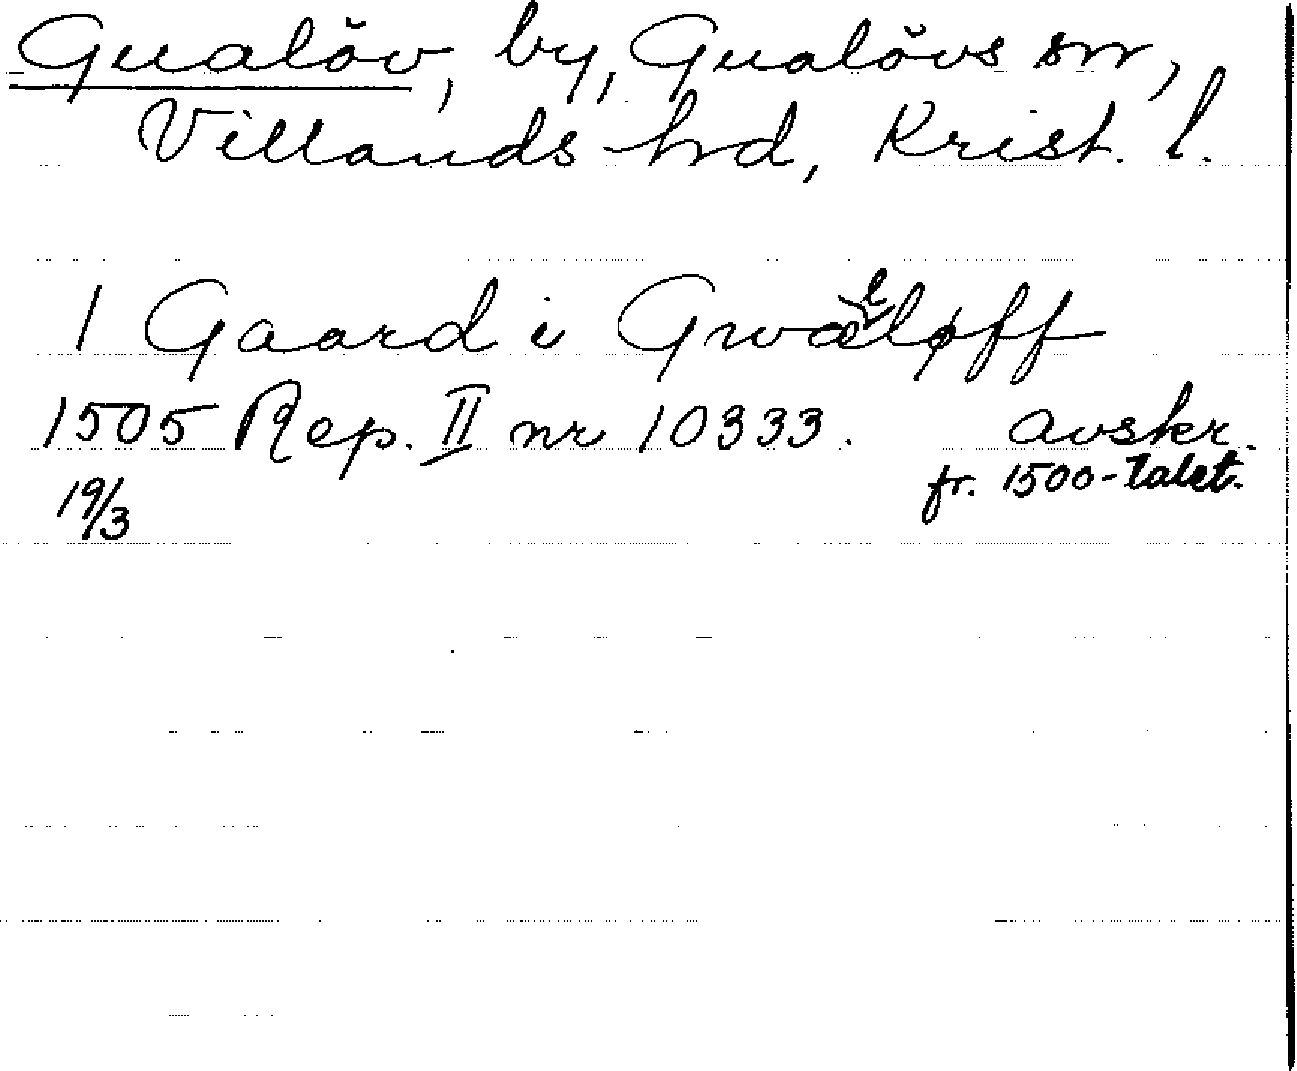 Gualöv, by, Gualövs sn,
Villands hd, Krist. l.
1 Gaard i Gwæleløff
1505 Rep. II nr 10333. avskr.
19/3 fr. 1500-talet.